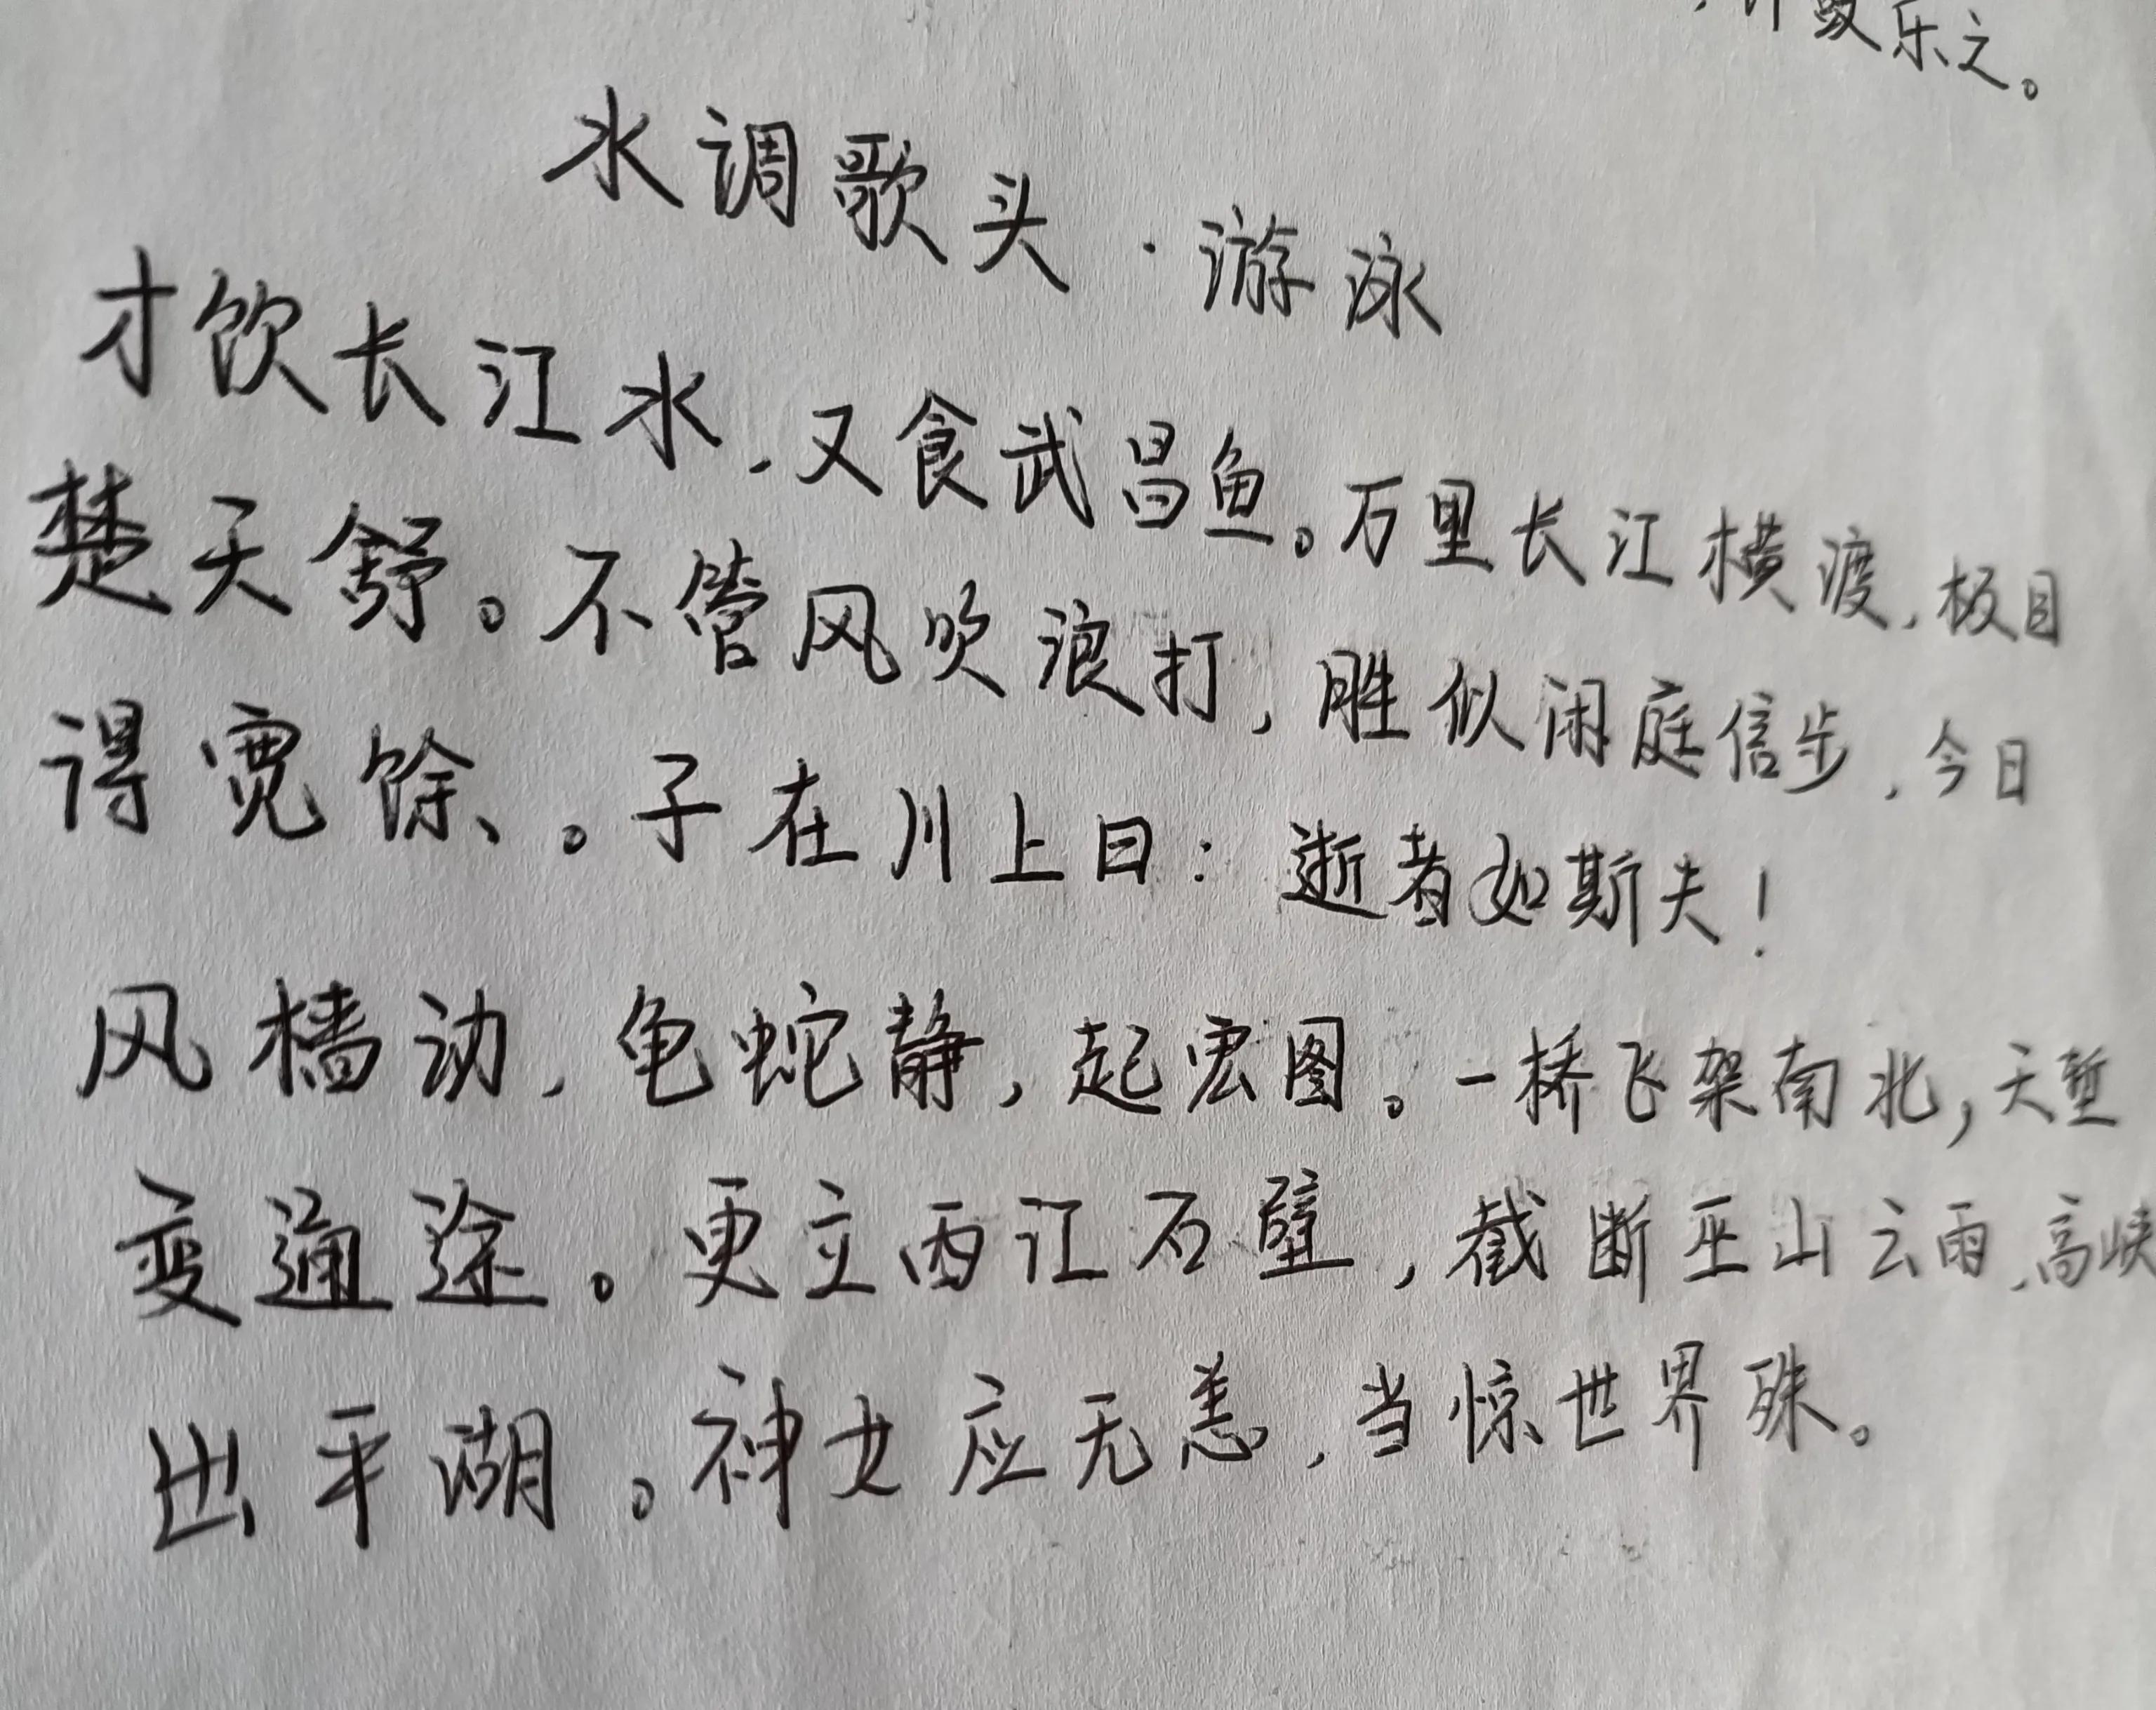 乐之。
水调歌头·游泳
才饮长江水，又食武昌鱼。万里长江横渡，极目
楚天舒。不管风吹浪打，胜似闲庭信步，今日
得宽馀。子在川上曰：逝者如斯夫！
风樯动，龟蛇静，起宏图。一桥飞架南北，天堑
变通途。更立西江石壁，截断巫山云雨，高峡
出平湖。神女应无恙，当惊世界殊。